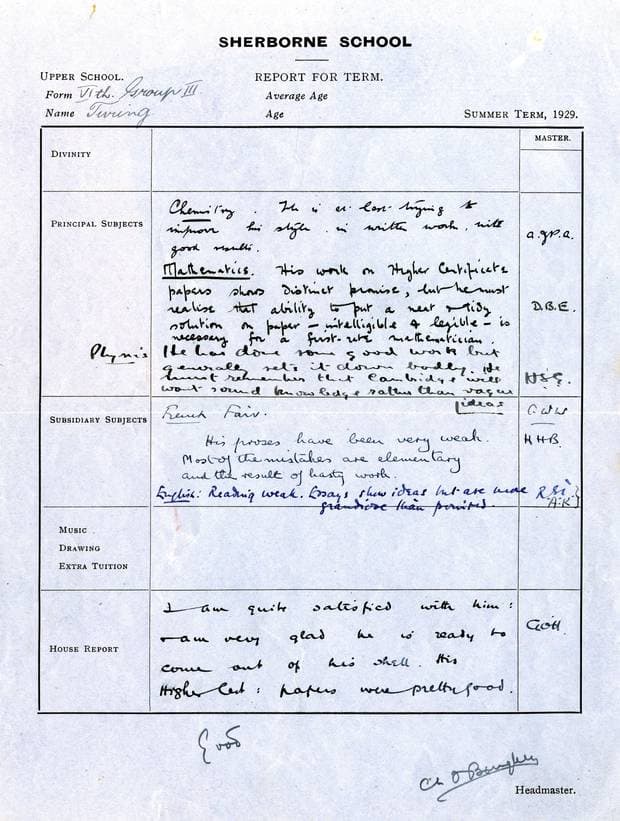 SHERBORNE SCHOOL
UPPER SCHOOL.
REPORT FOR TERM.
Form VIth. Group III
Average Age
Name Turing
Age
SUMMER TERM, 1929.
MASTER.
DIVINITY
PRINCIPAL SUBJECTS
Chemistry. He is at last trying to
improve his style in written work, with
good results.
A.J.P.A.
Mathematics. His work on Higher Certificate
papers shows distinct promise, but he must
realise that ability to put a neat & tidy
solution on paper – intelligible & legible – is
necessary for a first-rate mathematician.
D.B.E.
Physics
He has done some good work but
generally sets it down badly. He
must remember that Cambridge will
want sound knowledge rather than vague
ideas
H.S.G.
SUBSIDIARY SUBJECTS
French Fair.
His proses have been very weak.
Most of the mistakes are elementary
and the result of hasty work.
H.H.B.
English: Reading weak. Essays show ideas but are more
grandiose than
A.K.
MUSIC
DRAWING
EXTRA TUITION
HOUSE REPORT
I am quite satisfied with him:
I am very glad he is ready to
come out of his shell. His
Higher Cert: papers were pretty good.
G.O'H.
Good
Headmaster.